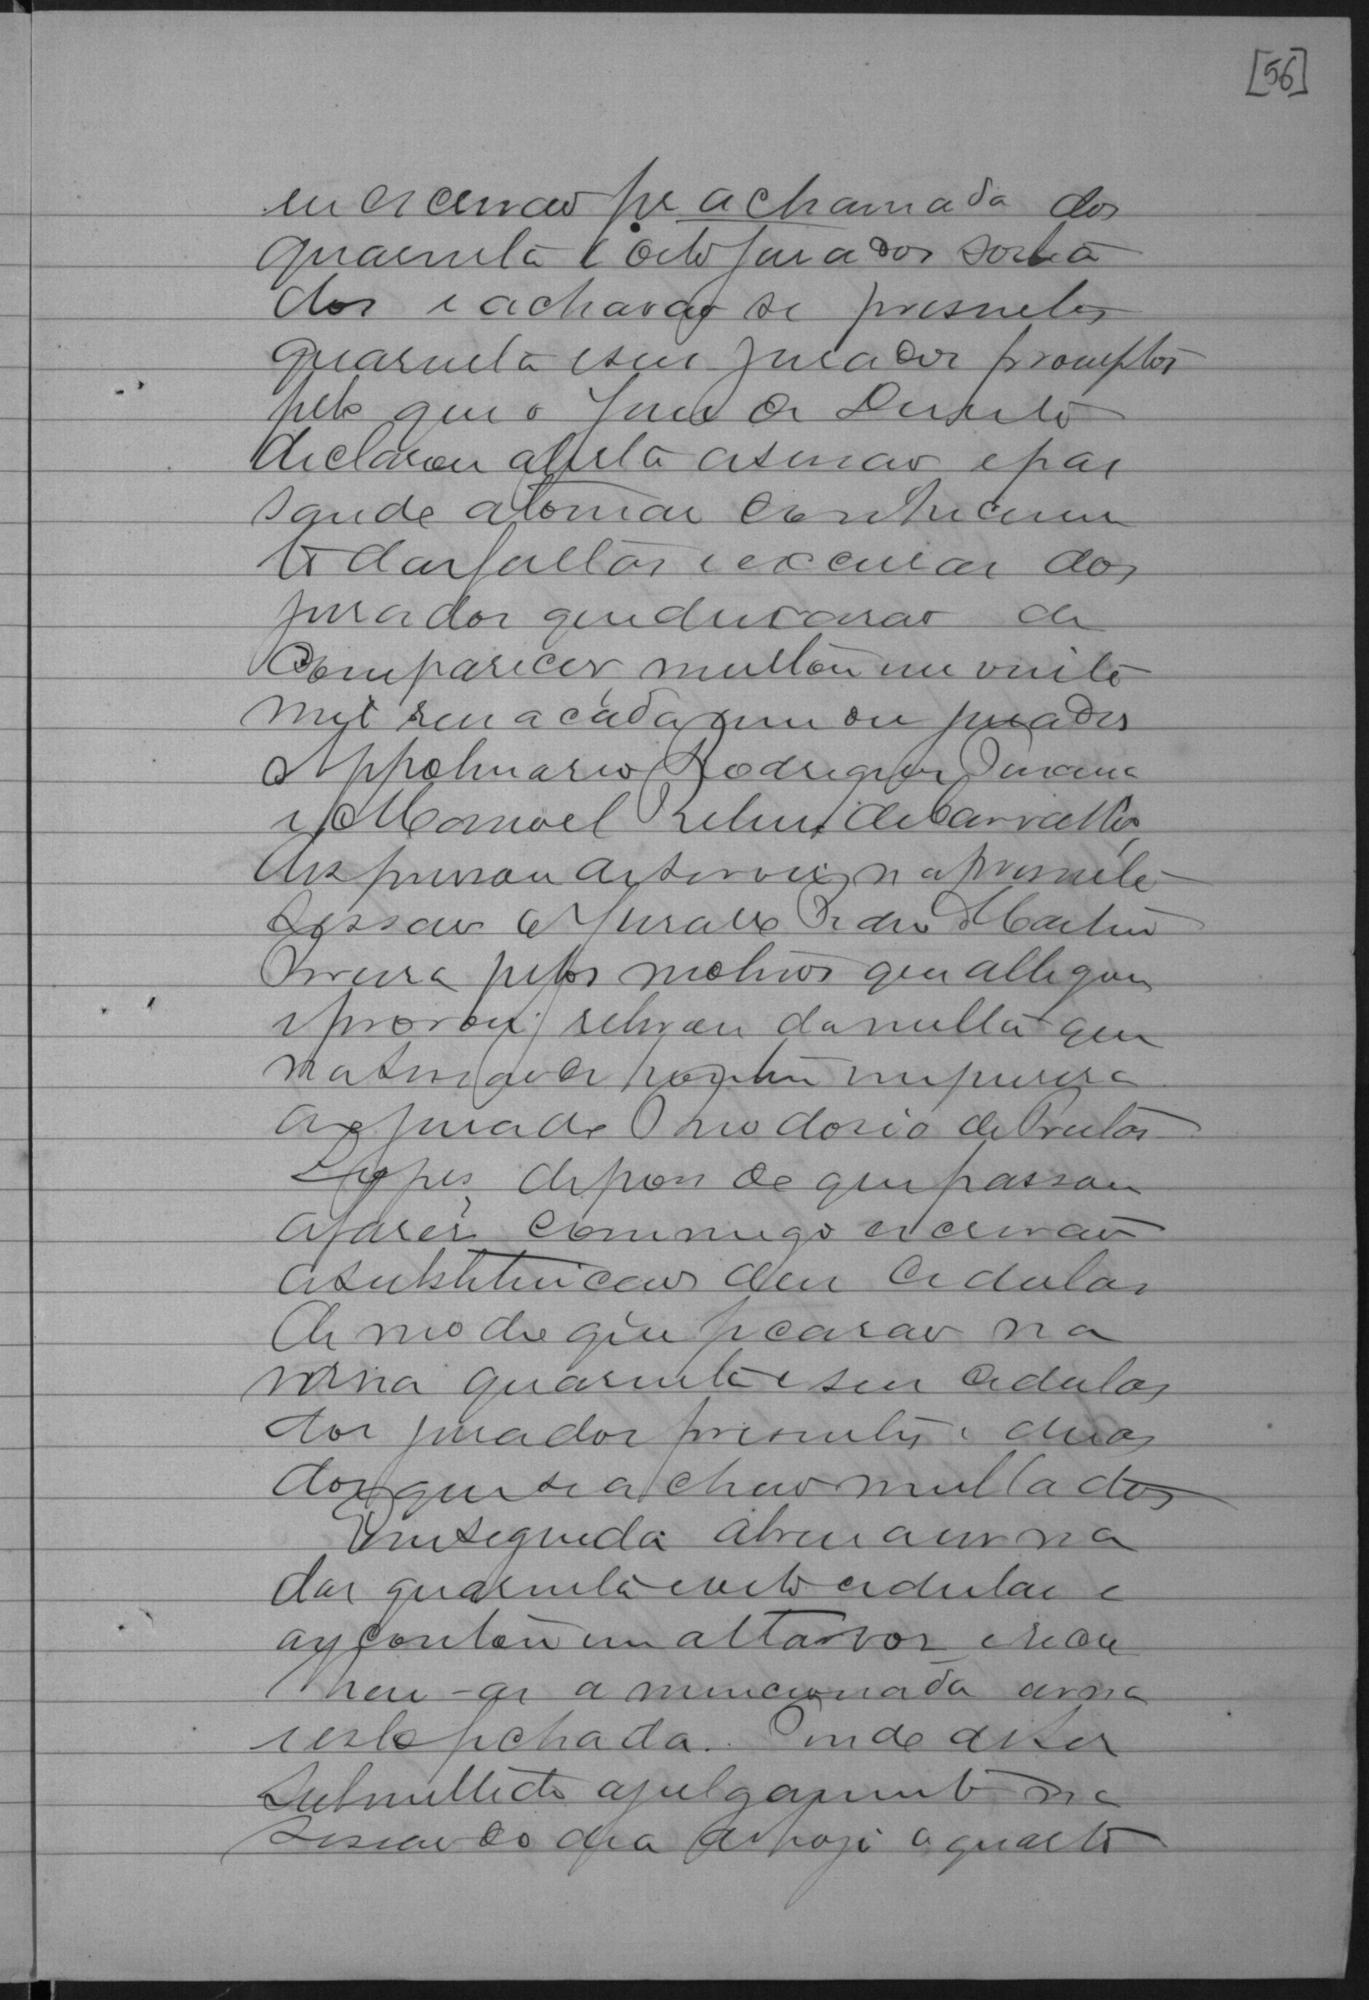 [56]
eu escrivão fez a chamada dos
quarenta e oito jurados sortea
dos e acharão se presentes
quarenta e seis jurados promptos
pelo que o Juiz de Direito
declarou aberta a sessão e pas
sando a tomar conhecimen
to das faltas e excusas dos
jurados que deixarão de
comparecer, multou em vinte
mil reis a cada um dos jurados
Appolinario Rodrigues
e Manoel de Carvalho,
dispensou de servir na presente
sessão o Jurado Pedro Martins
pelos motivos que allegou
e provou; relevou da multa que
na sessão de hontem impusera
ao jurado Theodosio de Freitas
Lopes, depois do que passou
a fazer commigo escrivão
a substituição das cedulas
de modo que ficarão na
urna quarenta e seis cedulas
dos jurados presentes e duas
dos que se achão multados
Em seguida abrio a urna
das quarenta e oito cedulas e
as contou em alta voz e reco
lheu-as a mencionada urna
e esta fechada. Tendo de ser
submettido a julgamento na
sessão do dia de hoje o quarto